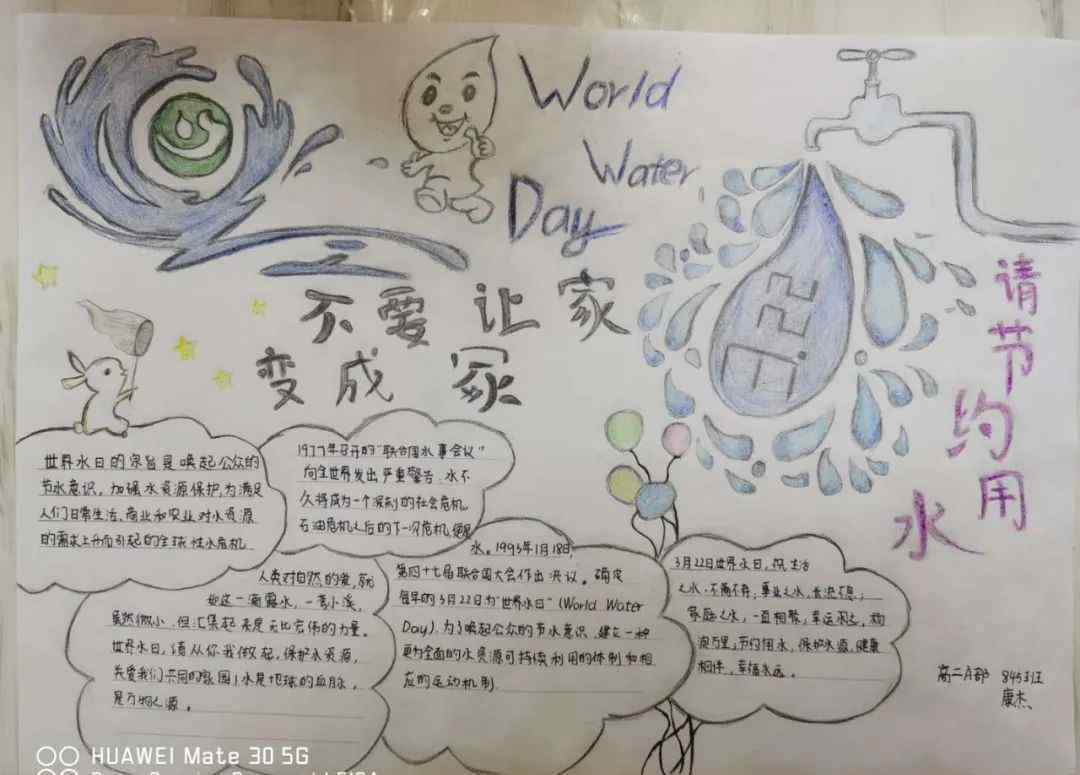 World
Water
Day
不要让家
变成冢
请节约用
水
世界水日的宗旨是唤起公众的
节水意识，加强水资源保护，为满足
人们日常生活、商业和农业对水资源
的需求上升而引起的全球性水危机
1977年召开的"联合国水事会议"
向全世界发出严重警告：水不
久将成为一个深刻的社会危机，
石油危机之后的下一次危机便是
水。1993年1月18日，
第四十七届联合国大会作出决议。确定
每年的3月22日为"世界水日"(World Water
Day)。为了唤起公众的节水意识，建立一种
更为全面的水资源可持续利用的体制和相
应的运动机制.
人类对自然的爱，就
如这一滴露水，一条小溪，
虽然微小，但汇集起来是无比宏伟的力量。
世界水日，请从你我做起，保护水资源，
关爱我们共同的家园！水是地球的血脉，
是万物之源。
3月22日世界水日，祝生活
之水，不漏不弃，事业之水，长流不息；
家庭之水，一直相聚；幸运
浪万里；节约用水，保护水源，健康
相伴，幸福永远。
高二A部 845班
康杰
HUAWEI Mate 30 5G